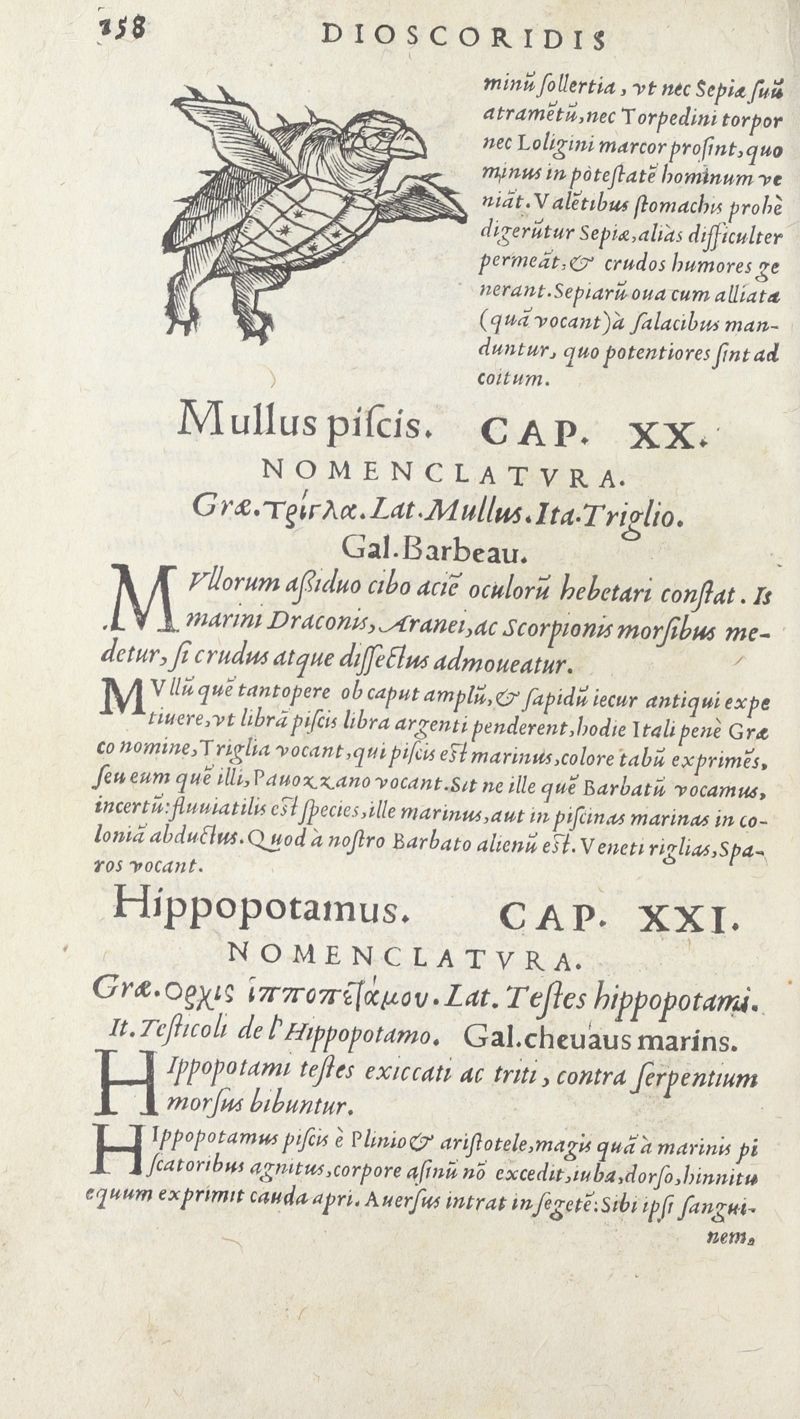 158 DIOSCORIDIS
minũ ſollertia, vt nec Sepiæ ſuũ
atramẽtũ, nec Torpedini torpor
nec Loligini marcor proſint, quo
minus in poteſtatẽ hominum ve
niãt. Valẽtibus ſtomachis probè
digerũtur Sepiæ, aliàs difficulter
permeãt, & crudos humores ge
nerant. Sepiarũ oua cum alliata
(quã vocant) à ſalacibus man-
duntur, quo potentiores ſint ad
coitum.
Mullus piſcis. CAP. XX.
NOMENCLATVRA.
Græ. τρίγλα. Lat. Mullus. Ita. Triglio.
Gal. Barbeau.
MVllorum aßiduo cibo aciẽ oculorũ hebetari conſtat. Is
marini Draconis, Aranei, ac Scorpionis morſibus me-
detur, ſi crudus atque diſſectus admoueatur.
MVllũ quẽ tantopere ob caput amplũ, & ſapidũ iecur antiqui expe
tiuere, vt librã piſcis libra argenti penderent, hodie Itali penè Græ
co nomine, Triglia vocant, qui piſcis eſt marinus, colore tabũ exprimẽs,
ſeu eum quẽ illi, Pauozzano vocant. Sit ne ille quẽ Barbatũ vocamus,
incertũ: fluuiatilis eſt ſpecies, ille marinus, aut in piſcinas marinas in co-
loniã abductus. Quod à noſtro Barbato alienũ eſt. Veneti riglias, Spa-
ros vocant.
Hippopotamus. CAP. XXI.
NOMENCLATVRA.
Græ. ορχις ἱπποποτάμου. Lat. Teſtes hippopotami.
It. Teſticoli de l'Hippopotamo. Gal. cheuaus marins.
HIppopotami teſtes exiccati ac triti, contra ſerpentium
morſus bibuntur.
HIppopotamus piſcis è Plinio & ariſtotele, magis quã à marinis pi
ſcatoribus agnitus, corpore aſinũ nõ excedit, iuba, dorſo, hinnitu
equum exprimit cauda apri. Auerſus intrat in ſegetẽ: Sibi ipſi ſangui-
nem,